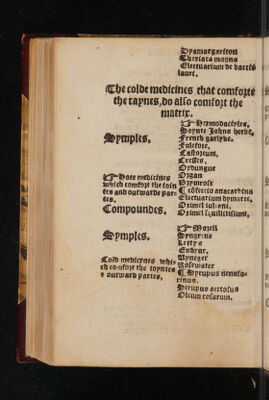 Dyamargariton
Theriaca magna
Electuarium de baccis
lauri.
The colde medicines that comforte
the raynes, do also comfort the
matrix.
Symples.
☞ Hermodactyles,
Saynte Johns herbe,
French garlyke.
Folefote,
Castoreum,
Cresses,
Organ
☞ Hote medicines
which comfort the ioin
tes and outwarde par
tes.
Compoundes.
Prymrose
Electuarium dymarte,
Oximel iuliani,
Oximel squilliticum,
Symples.
☞ Morell
Syngrene
Lettys
Endyue,
Vyneger
Rosewater
Cold medicynes whi
ch comfort the ioyntes
& outward partes.
¶ Syrupus nenufa-
rinus.
Sirupus acetosus
Oleum rosarum.